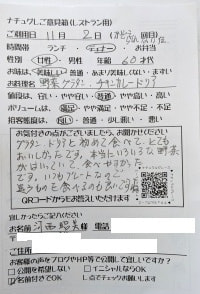 ナチュラルご意見箱(レストラン用)
ご利用日 11月 2日
時間帯 ランチ ・ ディナー ・ お弁当
性別 女性 ・ 男性 年齢 60才代
お味は 美味しい・普通・あまり美味しくない・まずい
お料理 野菜グラタン・チキンカレードリア
価格は 安い・やや安い・普通・やや高い・高い
ボリュームは 満足・やや満足・やや不足・不足
接客態度は 良い・普通・少し悪い・悪い
お気付きの点がございましたら、お聞かせください
グラタン、ドリアも初めて食べて、とても
おいしかったです。本当にいろいろな野菜
がはいっていて食べやすかった
です。いつもプレートなので
違うものを食べるのも良いですね
QRコードからもお答えいただけます
宜しかったらご記入ください
お名前 様 電話
ご住所
お客様の声をブログやHP等で公開して宜しいですか?
□公開を希望しない □イニシャルならOK
☑名前付きでOK し点でチェックお願いします。